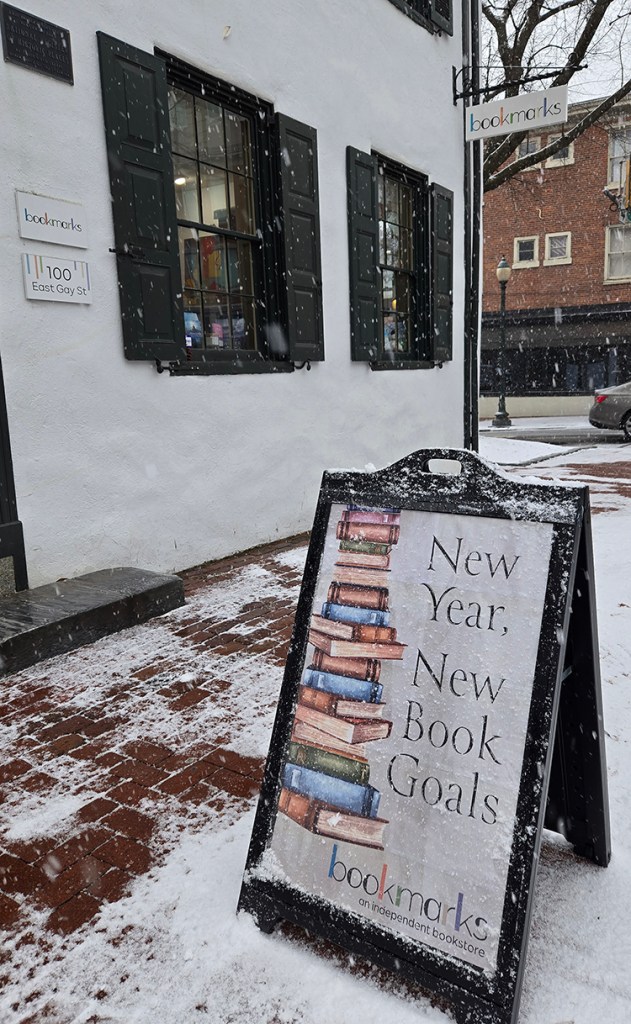 bookmarks
bookmarks
100
East Gay St.
New
Year,
New
Book
Goals
bookmarks
an independent bookstore